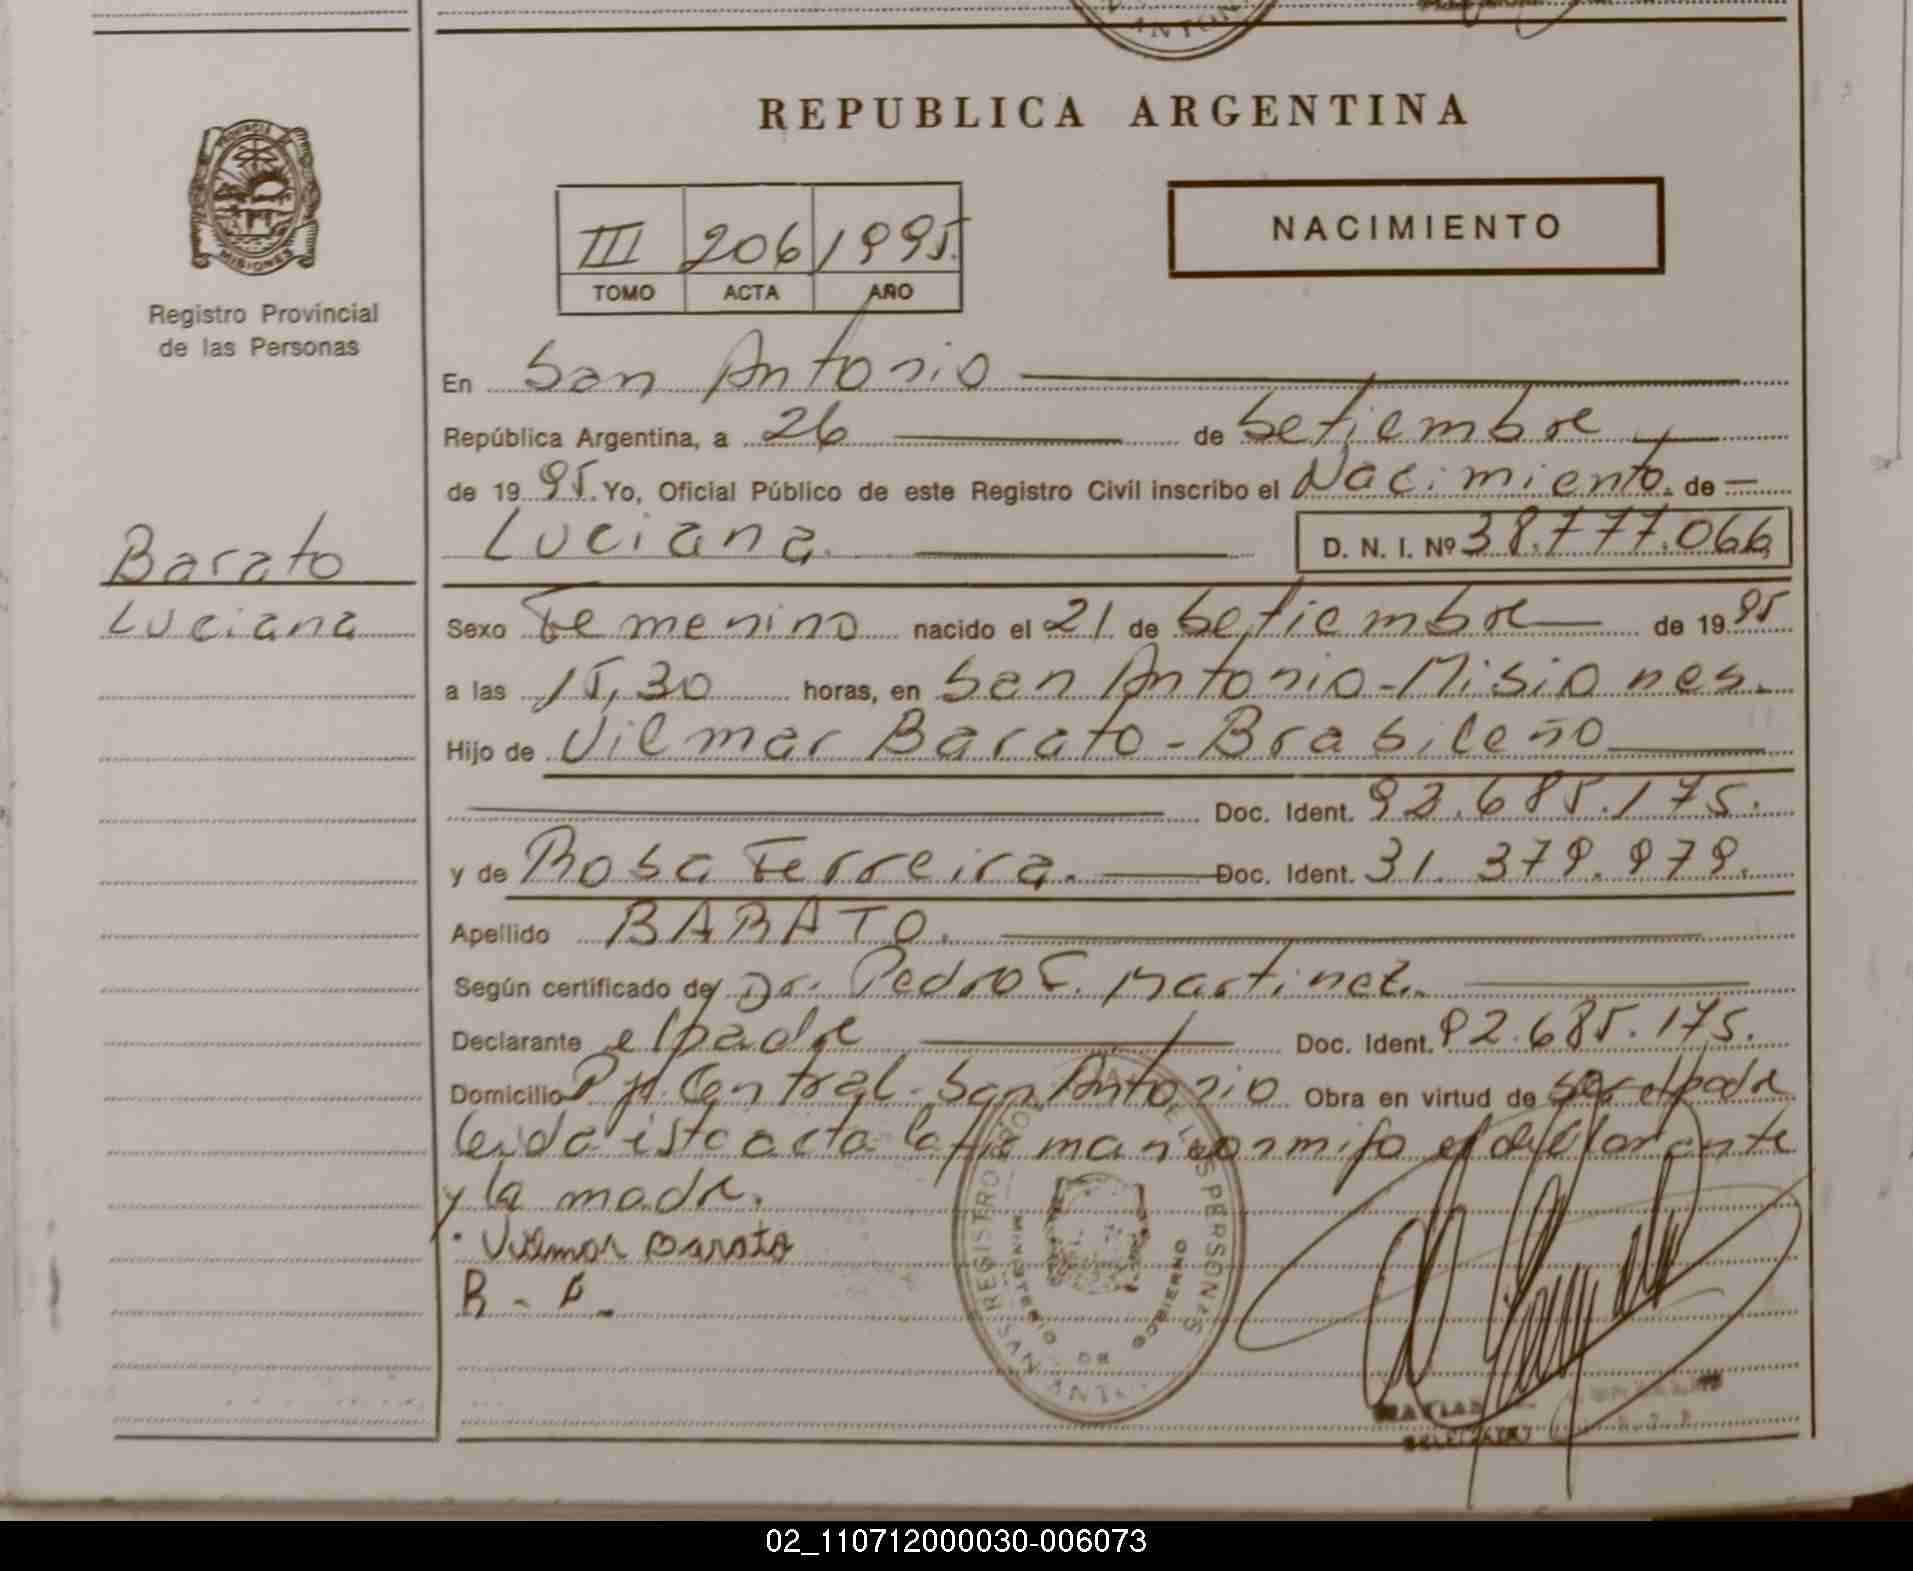 REPUBLICA ARGENTINA
PROVINCIA DE
MISIONES
Registro Provincial
de las Personas
NACIMIENTO
III 206 1995.
TOMO ACTA AÑO
En San Antonio
República Argentina, a 26 de Setiembre
de 1995. Yo, Oficial Público de este Registro Civil inscribo el Nacimiento. de
Luciana. D. N. I. Nº 38.777.066
Barato
Luciana
Sexo Femenino nacido el 21 de Setiembre de 1995
a las 15,30 horas, en San Antonio-Misiones.
Hijo de Vilmar Barato-Brasileño
Doc. Ident. 92.685.175.
y de Rosa Ferreira. Doc. Ident. 31.379.979.
Apellido BARATO.
Según certificado de Dr. Pedro F. Martinez.
Declarante el padre Doc. Ident. 92.685.175.
Domicilio Pje Central-San Antonio Obra en virtud de ser el padre
Leida esta acta la firman conmigo el declarante
y la madre.
Vilmar Barato
R - F
REGISTRO PERSONAS
MINISTERIO DE GOBIERNO
SAN ANTO
02_110712000030-006073